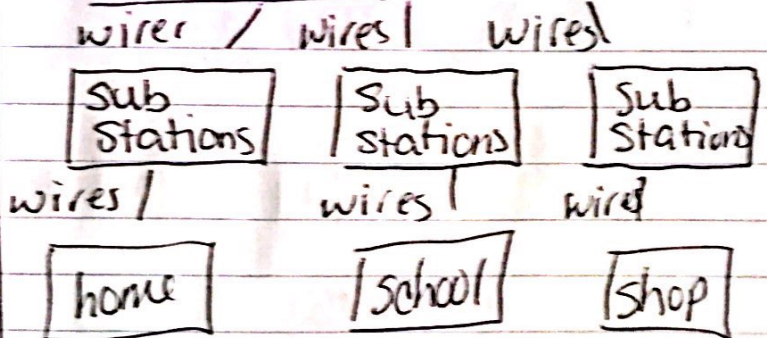 wires / wires | wires \
Sub Sub Sub
Stations Stations Stations
wires / wires | wires
home school shop